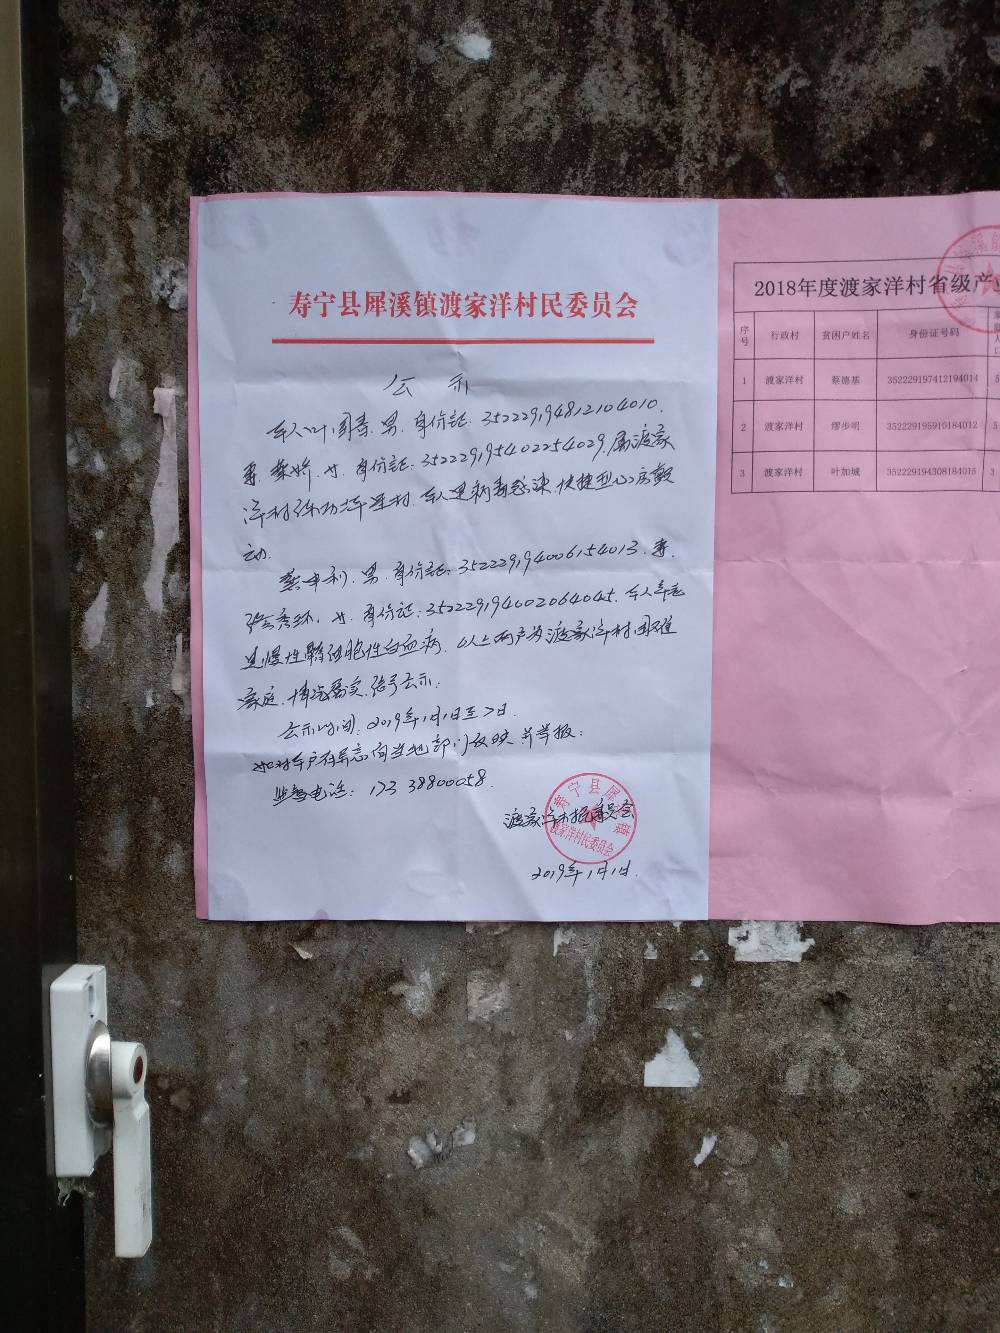 寿宁县犀溪镇渡家洋村民委员会
公示
本人叶 男.身份証:352229194812104010.
妻. 女.身份証:352229195402254029.属渡家
洋村 村.本人患病毒感染.快捷型心房颤
动.
男.身份証:352229194006154013.妻.
张秀环.女.身份证:352229194002064045.本人
慢性 细胞性白血病.以上两户为渡家洋村困难
家庭.情况属实.给予公示.
公示时间:2019年1月1日至7日.
如对本户有异议向当地部门反映并举报:
监督电话:123 38800058.
渡家洋村民委员会
2019年1月1日.
寿宁县犀溪镇
渡家洋村民委员会
2018年度渡家洋村省级产
序号 行政村 贫困户姓名 身份证号码 人口
1 渡家洋村 蔡德基 352229197412194014 5
2 渡家洋村 缪步明 352229195910184012 5
3 渡家洋村 叶加城 352229194308184015 3